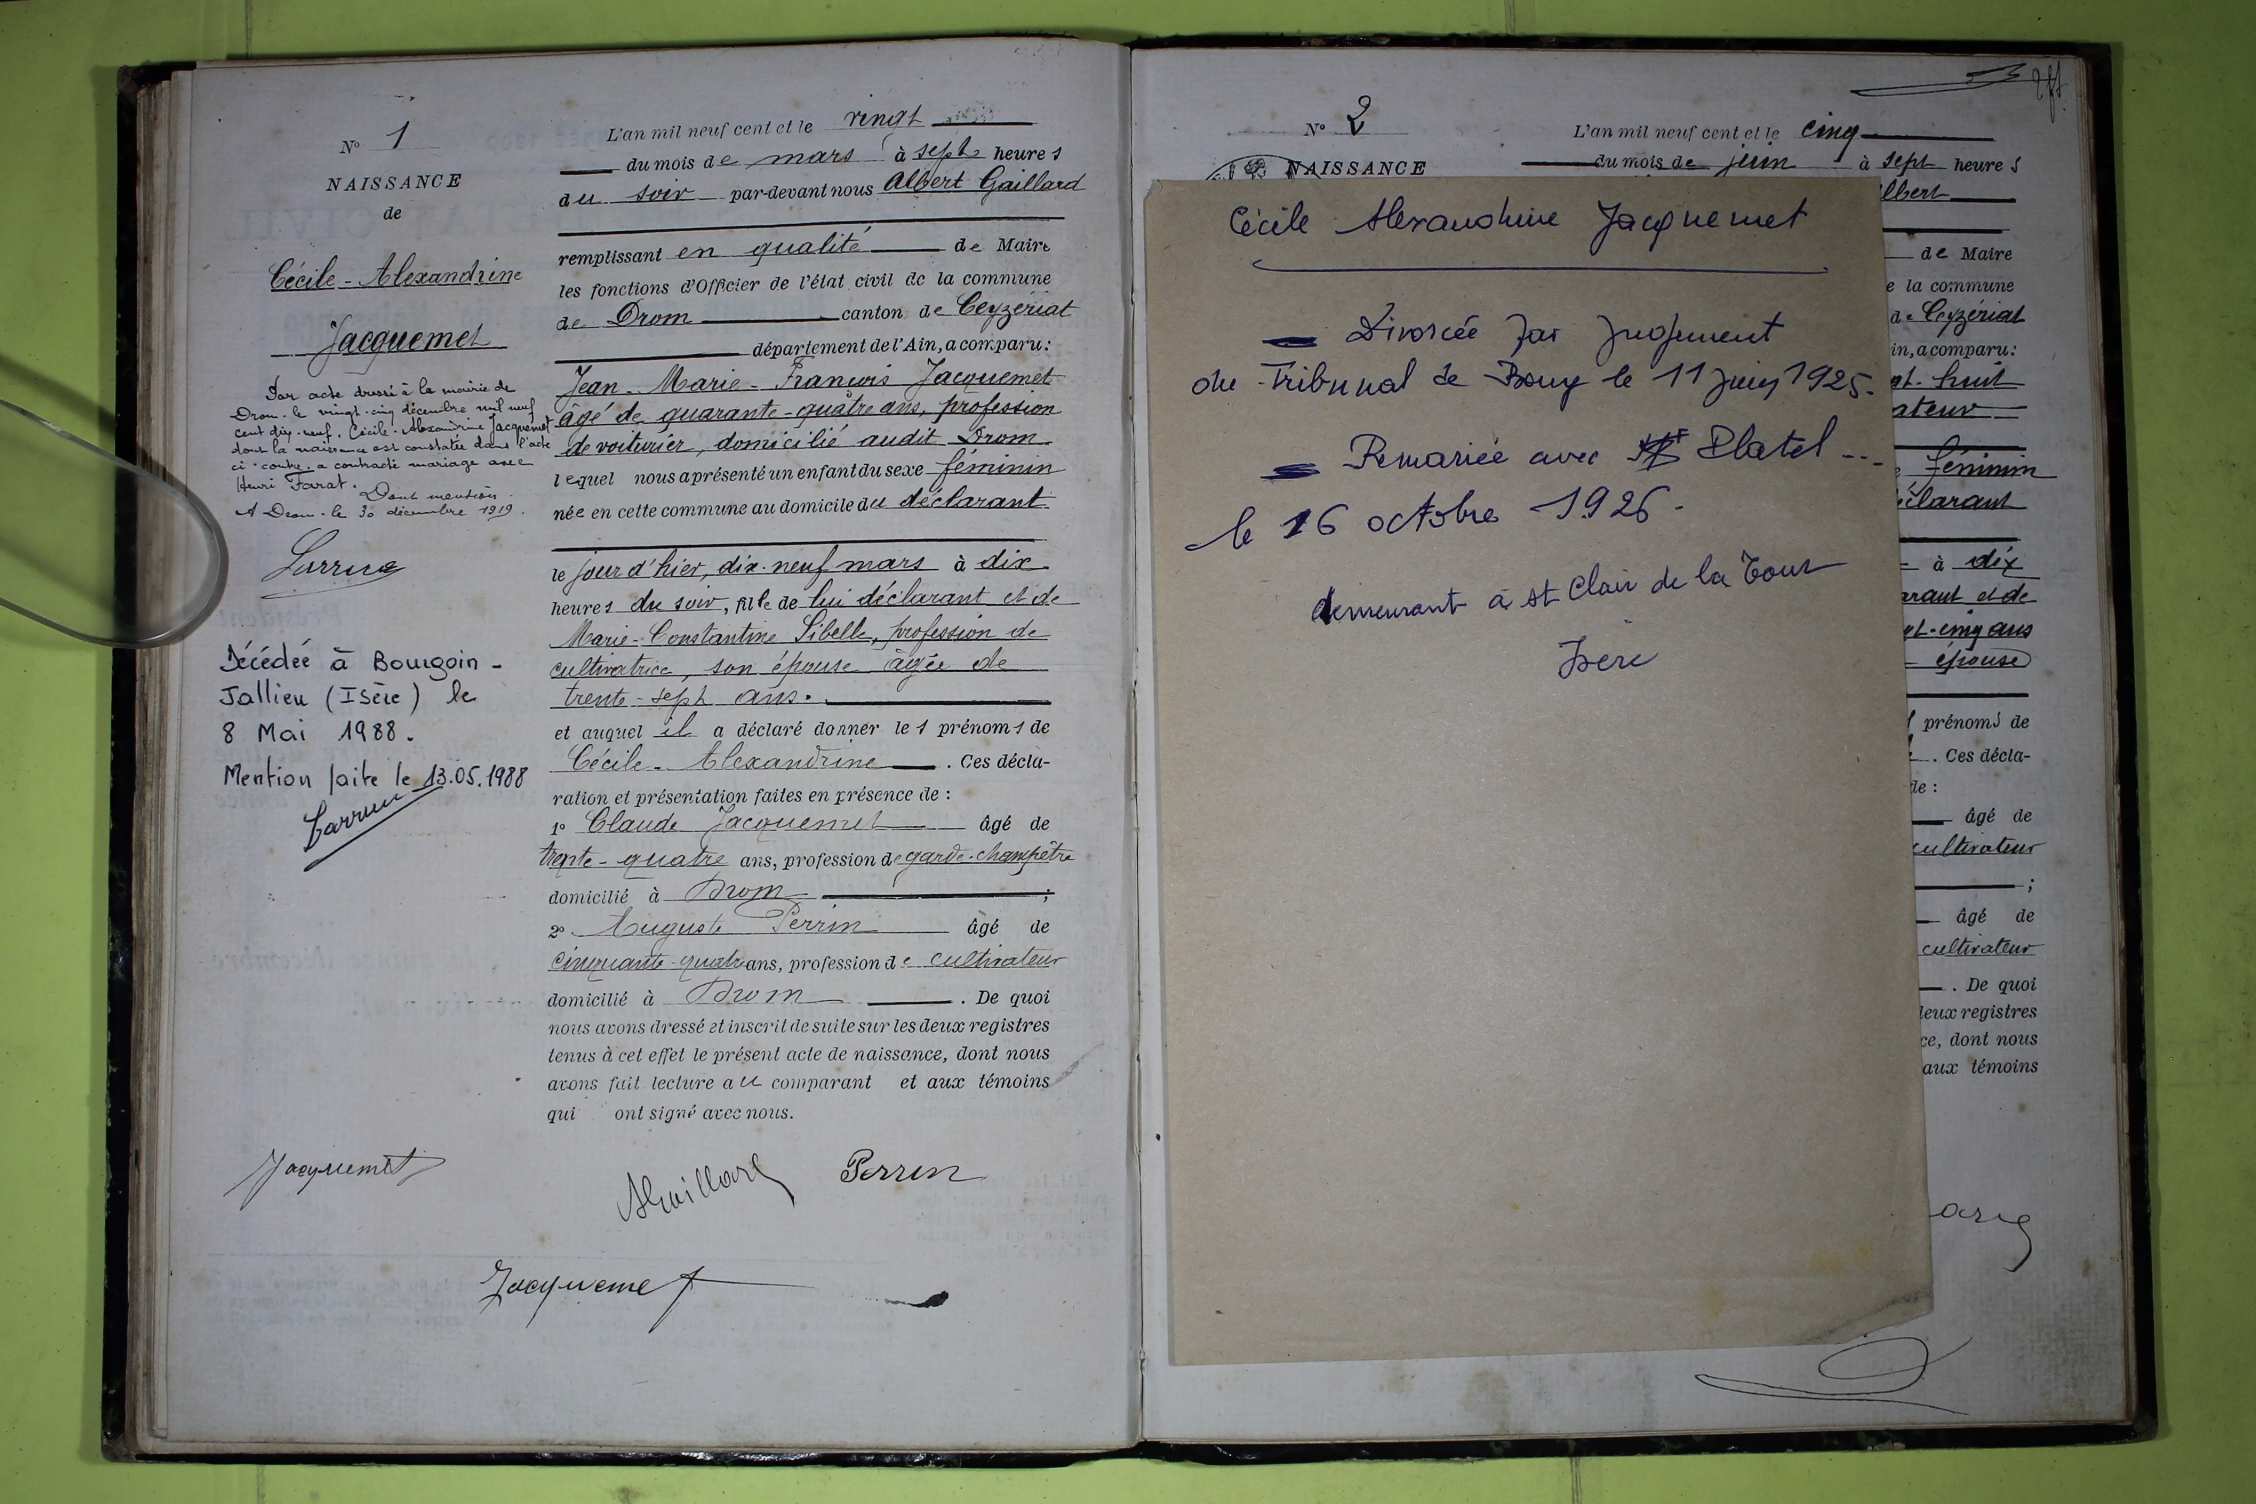 N° 1
NAISSANCE
de
Cécile-Alexandrine
Jacquemet
Par acte dressé à la mairie de
Drom. le vingt-cinq décembre mil neuf
cent dix-neuf. Cécile-Alexandrine Jacquemet
dont la naissance est constatée dans l'acte
ci-contre. a contracté mariage avec
Henri Farat.
Dont mention.
A Drom. le 30 décembre 1919.
Décédée à Bourgoin-
Jallieu (Isère) le
8 Mai 1988.
Mention faite le 13.05.1988
L'an mil neuf cent et le vingt
du mois de mars à sept heures
du soir par-devant nous Albert Gaillard
remplissant en qualité de Maire
les fonctions d'Officier de l'état civil de la commune
de Drom canton de Ceyzériat
département de l'Ain, a comparu:
Jean-Marie-François Jacquemet
âgé de quarante-quatre ans, profession
de voiturier, domicilié audit Drom
lequel nous a présenté un enfant du sexe féminin
née en cette commune au domicile du déclarant
le jour d'hier, dix-neuf mars à dix
heures du soir, fille de lui déclarant et de
Marie-Constantine Sibelle, profession de
cultivatrice, son épouse âgée de
trente-sept ans.
et auquel il a déclaré donner les prénoms de
Cécile-Alexandrine. Ces décla-
ration et présentation faites en présence de :
1° Claude Jacquemet âgé de
trente-quatre ans, profession de garde-champêtre
domicilié à Drom ;
2° Auguste Perrin âgé de
cinquante-quatre ans, profession de cultivateur
domicilié à Drom. De quoi
nous avons dressé et inscrit de suite sur les deux registres
tenus à cet effet le présent acte de naissance, dont nous
avons fait lecture au comparant et aux témoins
qui ont signé avec nous.
Jacquemet
AGaillard
Perrin
Jacquemet
N° 2
NAISSANCE
L'an mil neuf cent et le cinq
du mois de juin à sept heures
Cécile Alexandrine Jacquemet
Divorcée par jugement
du Tribunal de Bourg le 11 juin 1925.
Remariée avec Platel ...
le 16 octobre 1926.
demeurant à St Clair de la Tour
Isère
lbert
de Maire
e la commune
de Ceyzériat
in, a comparu:
gt-huit
ateur
féminin
éclarant
à dix
arant et de
gt-cinq ans
épouse
prénoms de
. Ces décla-
de :
âgé de
cultivateur
;
âgé de
cultivateur
. De quoi
deux registres
ce, dont nous
aux témoins